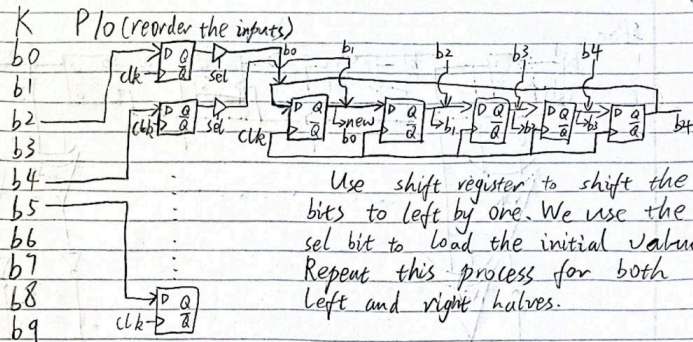 K P10 (reorder the inputs)
b0
b1
b2
b3
b4
b5
b6
b7
b8
b9
D Q
Q̅
clk
sel
D Q
Q̅
clk
sel
D Q
Q̅
clk
b0 b1 b2 b3 b4
D Q
Q̅
clk
new
b0
D Q
Q̅
b1
D Q
Q̅
b2
D Q
Q̅
b3
D Q
Q̅
b4
Use shift register to shift the
bits to left by one. We use the
sel bit to load the initial value
Repeat this process for both
left and right halves.